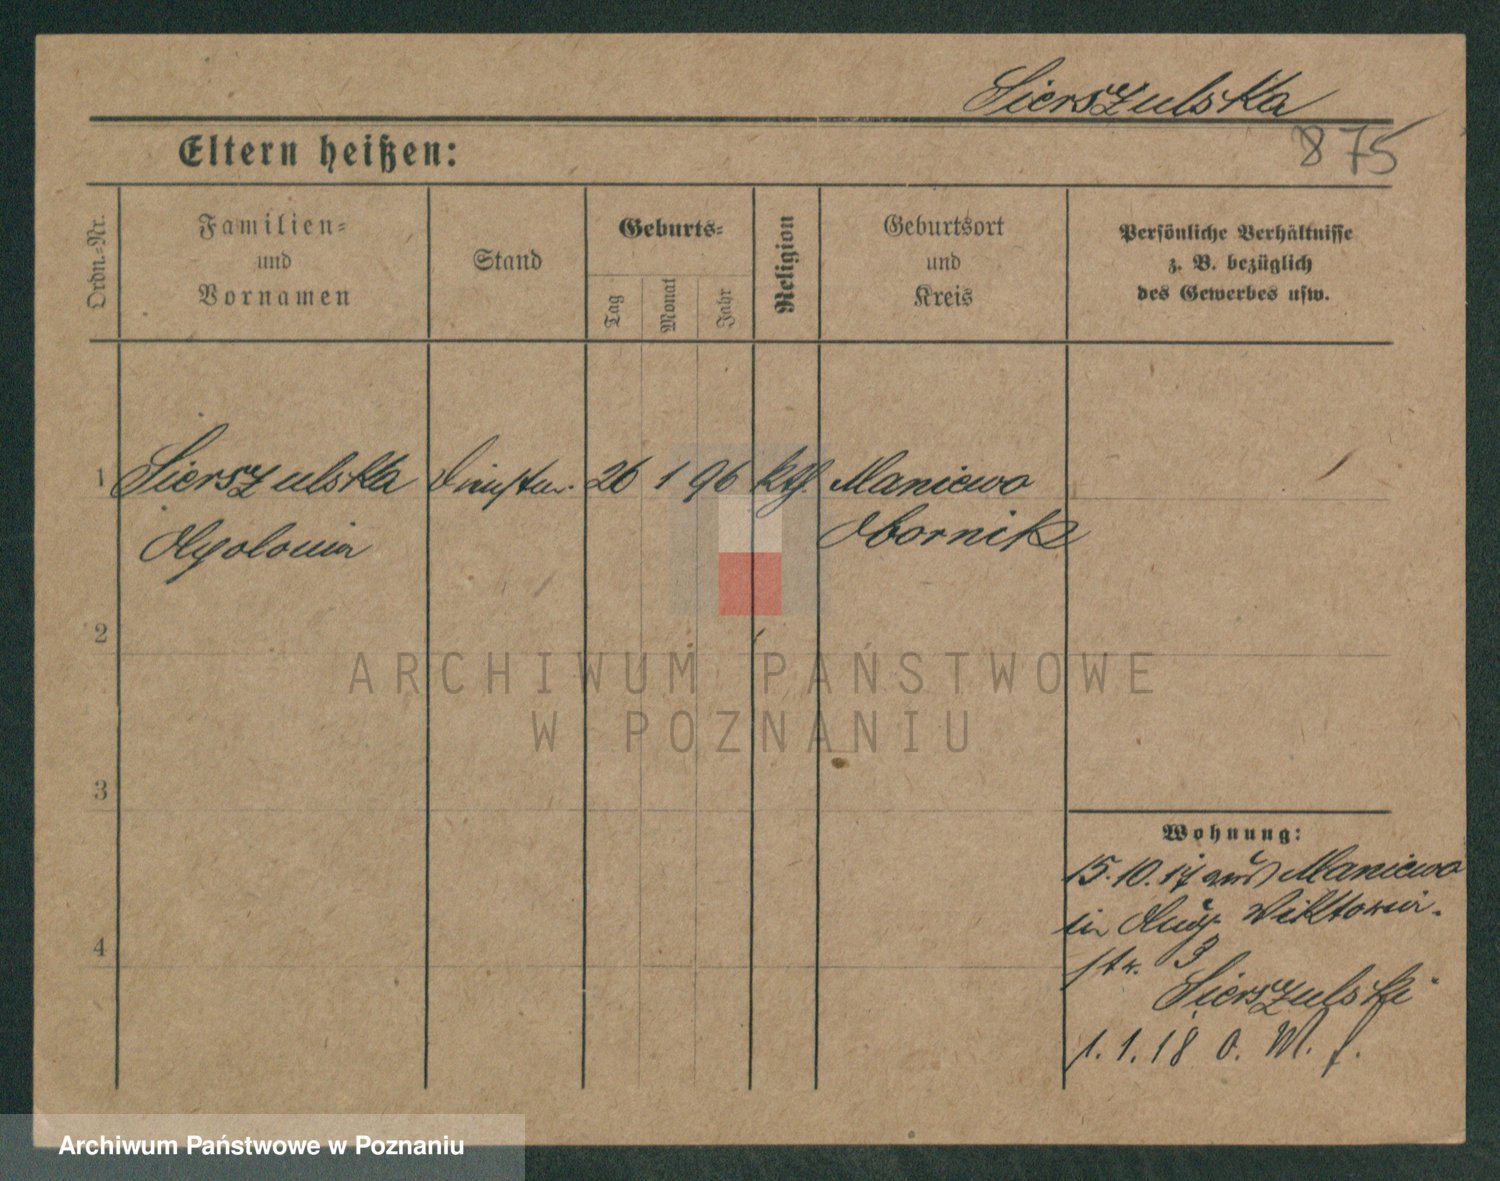 Sierszulska
875
Eltern heißen:
Ordn.-Nr.
Familien-
und
Vornamen
Stand
Geburts-
Tag
Monat
Jahr
Religion
Geburtsort
und
Kreis
Persönliche Verhältnisse
z. B. bezüglich
des Gewerbes usw.
1 Sierszulska 26 1 96 kth. Maniewo
Obornik
2
ARCHIWUM PAŃSTWOWE
W POZNANIU
3
Wohnung:
15.10.17 aus Maniewo
in Wiktoria-
4
str. 3
Sierszulski
1.1.18 o. M. f.
Archiwum Państwowe w Poznaniu